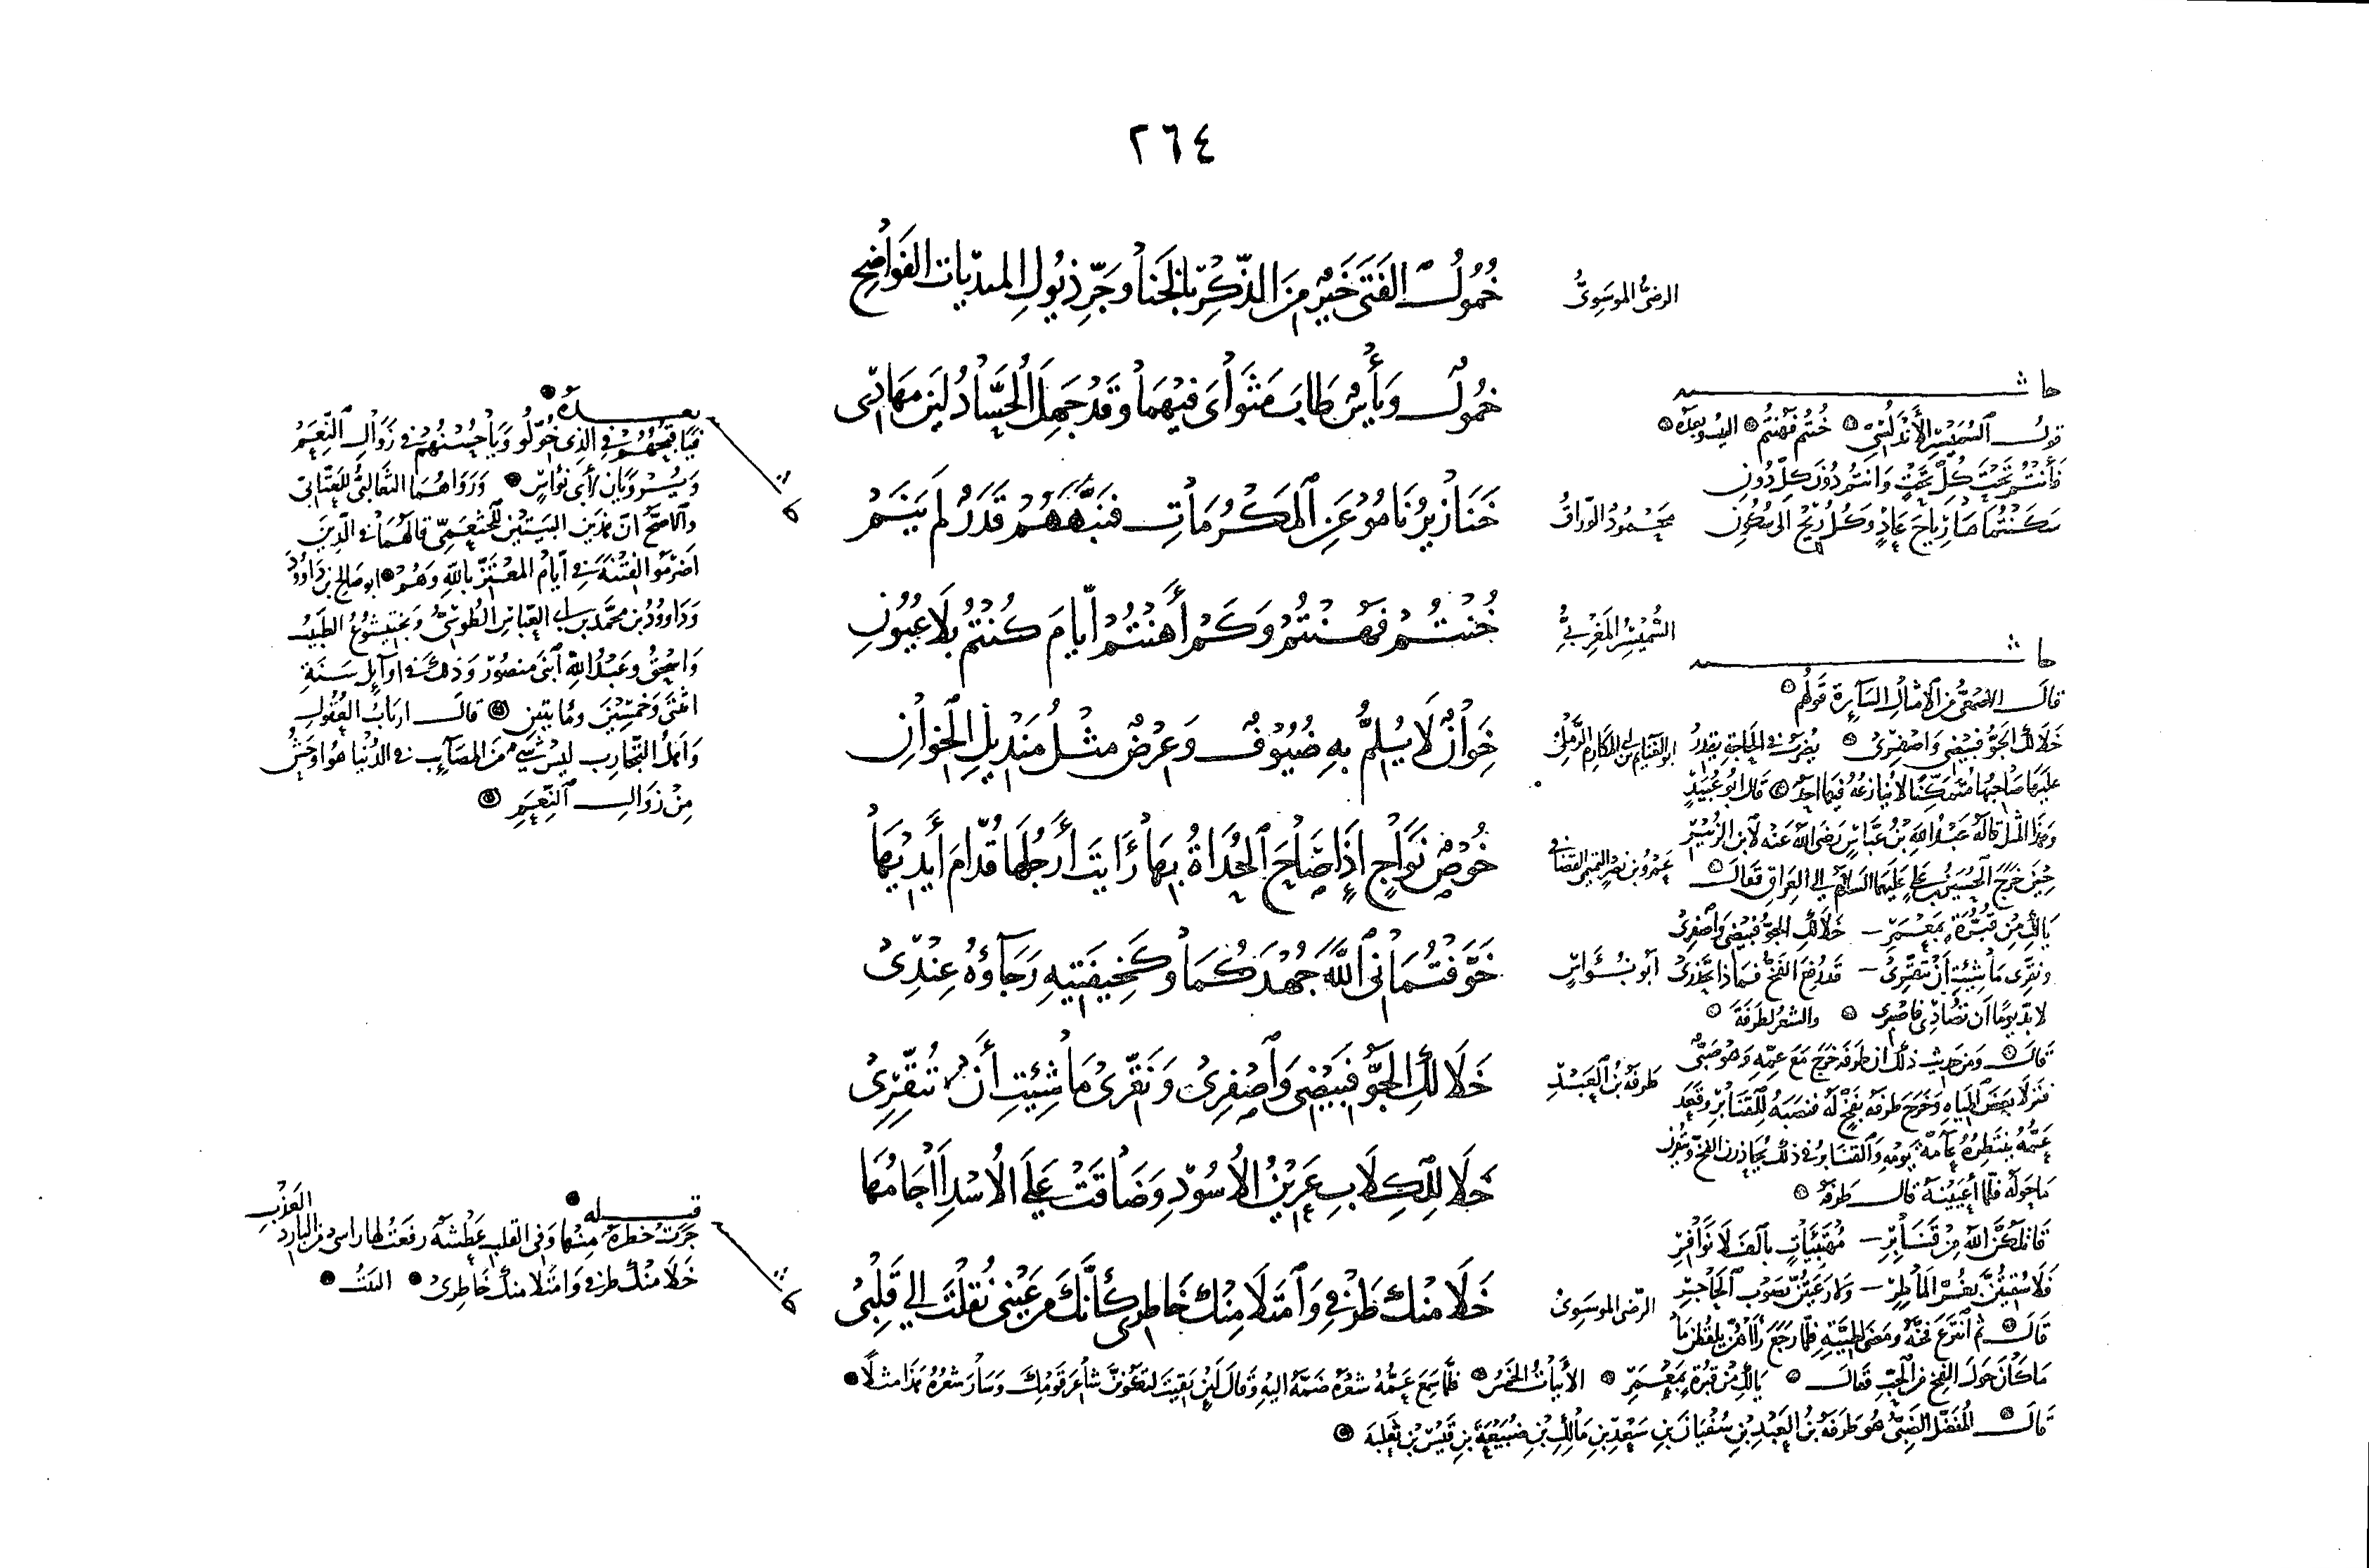 ٢٦٤
خُمُولُ الفَتَى خَيْرٌ مِنَ الذِّكْرِ بِالخَنَا وَجَرِّ ذُيُولِ المندِيات الفَوَاضِحِ
الرضىُّ الموسَوِىُّ
خُمُولٌ وَيَأْسٌ طَابَ مَثْوَاىَ فِيهِمَا وَقَدْ جَهِلَ الْحُسَّادُ لَيْنَ مِهَادِى
خَنَازِيرُ نَامُوْا عَنِ الْمَكْرُمَاتِ فَنَبَّهَهُمْ قَدَرٌ لَمْ يَنَمْ
مَحْمُودُ الوَرّاقُ
خُنْتُمْ فَهُنْتُمْ وَكَمْ أَهَنْتُمْ أَيَّامَ كُنْتُمْ بِلَا عُيُونِ
السُّمَيْسِرُ المَغْرِبىُّ
خِوَانٌ لَا يُلِمُّ بِهِ ضُيُوفٌ وَعِرْضٌ مِثْلُ مِنْدِيلِ الْخِوَانِ
ابو الغنايم بن ابى المكارم الرَّمْلىُّ
خُوصٌ نَوَاجٍ إِذَا صَاحَ الْحُدَاةُ بِهَا رَأَيْتَ أَرْجُلَهَا قُدَّامَ أَيْدِيهَا
خَوَّفْتُمَانِى اللهَ جُهْدَكُمَا وَكَخِيفَتِيهِ رَجَاؤُهُ عِنْدِى
أبُو نُوَاسٍ
خَلَا لَكِ الْجَوُّ فَبِيضِى وَاصْفِرِى وَنَقِّرِى مَا شِئْتِ أَنْ تُنَقِّرِى
طَرفَةُ بْنُ الْعَبْدِ
خَلَا لِلْكِلَابِ عَرِينُ الْأُسُودِ وَضَاقَتْ عَلَى الْأُسْدِ آجَامُهَا
خَلَا مِنْكَ طَرْفِى وَامْتَلَا مِنْكَ خَاطِرِى كَأَنَّكَ مِنْ عَيْنِى نُقِلْتَ إِلَى قَلْبِى
الرّضى الموسَوِىُّ
حاشــــية
قولُ السُّمَيْسِرِ الأَنْدَلُسِىِّ خُنْتُمْ فَهُنْتُمْ البيت وبعده
فَأَنْتُمْ تَحْتَ كُلِّ تَحْتٍ وَأَنْتُمْ دُوْنَ كُلِّ دُونِ
سَكَنْتُمْ يَا رِيَاحَ عَادٍ وَكُلُّ رِيحٍ الَى سُكُونِ
حاشــــية
قَالَ الأصْمَعِىُّ مِنَ الأمثالِ السَّايرةِ قَولُهُم
خَلَا لكِ الجَوُّ فَبِيضِى وَاصْفِرِى يُضرَبُ فى الحَاجَةِ يَقْدِرُ
عَلَيْهَا صَاحِبُهَا مُتَمَكِّنًا لَا يُنَازِعُهُ فِيهَا أحَدٌ قالَ أبُو عُبَيْدٍ
وَهَذا المثل قالَهُ عَبْدُ اللهِ بْنُ عَبَّاسٍ رَضى اللهُ عَنْه لابن الزُّبَيْرِ
حِيْنَ خَرَجَ الحُسَيْنُ بْنُ عَلِىٍّ عَلَيْهِمَا السَّلَامُ الى العِرَاقِ فَقَالَ
يَا لَكِ مِنْ قُبَّرَةٍ بِمَعْمَرِ – خَلَا لَكِ الجوُّ فَبِيضِى وَاصْفِرِى
ونَقِّرِى مَا شِئْتِ أَنْ تُنَقِّرِى – قَدْ رُفِعَ الفَخُّ فَمَاذَا تَحْذَرِى
لا بُدَّ يَومًا أن تُصَادِى فَاصْبِرِى والشعرُ لطرفَةَ
قَالَ وَمن حَديث ذلكَ انَّ طَرفَة خَرَجَ مَعَ عَمِّهِ وَهُوَ صَبِىٌّ
فنَزلَا بَعْضَ المِيَاهِ وَخَرَجَ طرفَة بفَخٍّ لَهُ فَنَصَبَهُ لِلْقَنَابِرِ وقَعَدَ
عَمّهُ يَنتَظِرُهُ عَامَّةَ يَومِهِ وَالقَنَابِرُ فى ذَلكَ يُحَاذِرنَ الفَخَّ وَيَنْقُرنَ
مَا حَوْلَهُ فَلمَّا أعْيَيْنَهُ قَالَ طَرفَةُ
قَاتَلَكُنَّ اللهُ مِنْ قَنَابِرِ – مُهْتَدِيَاتٍ بالفَلَا نَوَافِرِ
قَالَ ثم انتزعَ فخَّهُ ومَضَى لِطِيَّتِهِ فلمَّا رَجَعَ رَآهُنَّ يَلقُطنَ مَا
مَا كَانَ حَولَ الفخّ مِنَ الحَبِّ فَقالَ يَا لَكِ مِنْ قُبَّرَةٍ بِمَعْمَرِ الأبْيَاتُ الخَمْسُ فلمَّا سَمِعَ عَمُّهُ شعرَهُ ضَمَّهُ اليْهِ وَقالَ لَئِنْ بَقِيتَ لتَكُونَنَّ شَاعِرَ قَومِكَ وَسَارَ شعرُهُ هَذَا مثلًا
قَالَ المُفَضَّلُ الضَّبِىُّ هُوَ طَرَفَةُ بْنُ العَبْدِ بْنِ سُفْيَانَ بْنِ سَعْدِ بْنِ مَالِكِ بْنِ ضُبَيْعَةَ بْنِ قَيْسِ بْنِ ثَعْلَبَةَ
بعـــده
فَيَا قُبْحَهُمْ فى الَّذِى خُوِّلُوا وَيَا حُسْنَهُمْ فى زَوَالِ النِّعَمْ
وَيُرْوَيَانِ لأَبى نُوَاسٍ وَرَوَاهُمَا الثَّعَالبىُّ لِلعَتَّابى
والأصَحُّ انَّ هَذَين البَيتَيْنِ للخَثعَمِىِّ قالَهُمَا فى الَّذِينَ
أضْرَمُوا الفِتْنَةَ فى أيَّام المعْتَزِّ بالله وَهُمْ ابو صَالِح بن دَاوُودَ
وَدَاوُودُ بن محمَّد بن ابى العَبَّاسِ الطُّوسِىُّ وَبَخْتِيشُوعُ الطَّبِيبُ
وَاسْحٰقُ وعَبْدُ اللهِ ابْنَى مَنصُورٍ وَذلكَ فى أوايل سَنَةِ
اثنَتَى وَخَمسِيْنَ ومِائتَين قالَ اربَابُ العُقُولِ
وَاهلُ التَّجَارِبِ ليسَ شَىءٌ منَ المصَايبِ فى الدُّنْيَا هُوَ أوحَشُ
مِنْ زَوَالِ النِّعَمِ
قبـــله
جَرَتْ خَطرَةٌ مِنْهَا وَفى القلبِ عَطْشَة رفَعْتُ لها راسى من البَارِدِ العَذْبِ
خَلَا مِنْكَ طرفى وَامْتَلَا منكَ خَاطِرِى البَيتُ